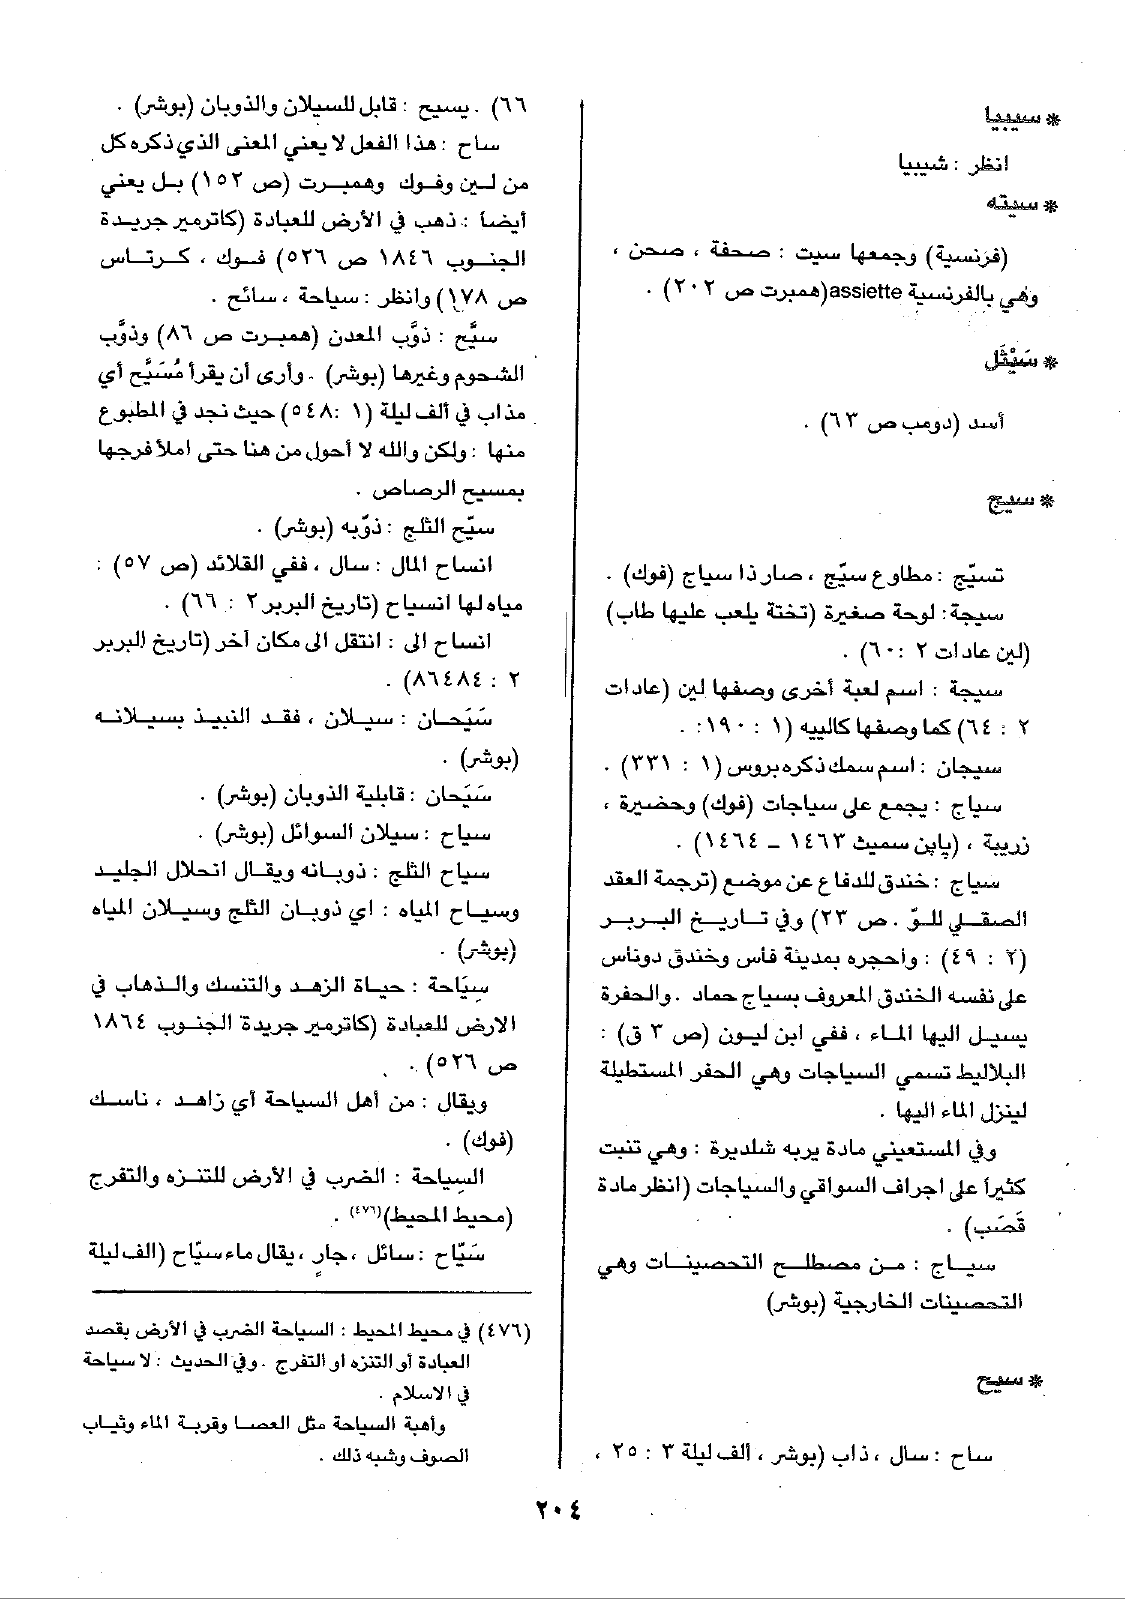 * سيبيا
انظر : شيبيا
* سيته
(فرنسية) وجمعها سيت : صحفة ، صحن ،
وهي بالفرنسية assiette (همبرت ص ٢٠٢) .
* سَيْثَل
أسد (دومب ص ٦٣) .
* سيج
تسيّج : مطاوع سيّج ، صار ذا سياج (فوك) .
سيجة : لوحة صغيرة (تختة يلعب عليها طاب)
(لين عادات ٢ : ٦٠) .
سيجة : اسم لعبة أخرى وصفها لين (عادات
٢ : ٦٤) كما وصفها كالييه (١ : ١٩٠ : .
سيجان : اسم سمك ذكره بروس (١ : ٣٣١) .
سياج : يجمع على سياجات (فوك) وحضيرة ،
زريبة ، (پاين سميث ١٤٦٣ ــ ١٤٦٤) .
سياج : خندق للدفاع عن موضع (ترجمة العقد
الصقلي للوّ . ص ٢٣) وفي تاريخ البربر
(٢ : ٤٩) : واحجره بمدينة فأس وخندق دوناس
على نفسه الخندق المعروف بسياج حماد . والحفرة
يسيل اليها الماء ، ففي ابن ليون (ص ٣ ق) :
البلاليط تسمي السياجات وهي الحفر المستطيلة
لينزل الماء اليها .
وفي المستعيني مادة يربه شلديرة : وهي تنبت
كثيراً على اجراف السواقي والسياجات (انظر مادة
قَصَب) .
سياج : من مصطلح التحصينات وهي
التحصينات الخارجية (بوشر)
* سيح
ساح : سال ، ذاب (بوشر ، ألف ليلة ٣ : ٢٥ ،
٦٦) . يسيح : قابل للسيلان والذوبان (بوشر) .
ساح : هذا الفعل لا يعني المعنى الذي ذكره كل
من لين وفوك وهمبرت (ص ١٥٢) بل يعني
أيضاً : ذهب في الأرض للعبادة (كاترمير جريدة
الجنوب ١٨٤٦ ص ٥٢٦) فوك ، كرتاس
ص ١٧٨) وانظر : سياحة ، سائح .
سيَّح : ذوَّب المعدن (همبرت ص ٨٦) وذوَّب
الشحوم وغيرها (بوشر) . وأرى أن يقرأ مُسَيَّح أي
مذاب في ألف ليلة (١ : ٥٤٨) حيث نجد في المطبوع
منها : ولكن والله لا أحول من هنا حتى املأ فرجها
بمسيح الرصاص .
سيّح الثلج : ذوّبه (بوشر) .
انساح المال : سال ، ففي القلائد (ص ٥٧) :
مياه لها انسياح (تاريخ البربر ٢ : ٦٦) .
انساح الى : انتقل الى مكان آخر (تاريخ البربر
٢ : ٨٦٤٨٤) .
سَيَحان : سيلان ، فقد النبيذ بسيلانه
(بوشر) .
سَيَحان : قابلية الذوبان (بوشر) .
سياح : سيلان السوائل (بوشر) .
سياح الثلج : ذوبانه ويقال انحلال الجليد
وسياح المياه : اي ذوبان الثلج وسيلان المياه
(بوشر) .
سيَاحة : حياة الزهد والتنسك والذهاب في
الارض للعبادة (كاترمير جريدة الجنوب ١٨٦٤
ص ٥٢٦) .
ويقال : من أهل السياحة أي زاهد ، ناسك
(فوك) .
السياحة : الضرب في الأرض للتنزه والتفرج
(محيط المحيط)(٤٧٦) .
سَيّاح : سائل ، جارٍ ، يقال ماء سيّاح (الف ليلة
(٤٧٦) في محيط المحيط : السياحة الضرب في الأرض بقصد
العبادة أو التنزه او التفرج . وفي الحديث : لا سياحة
في الاسلام .
وأهبة السياحة مثل العصا وقربة الماء وثياب
الصوف وشبه ذلك .
٢٠٤